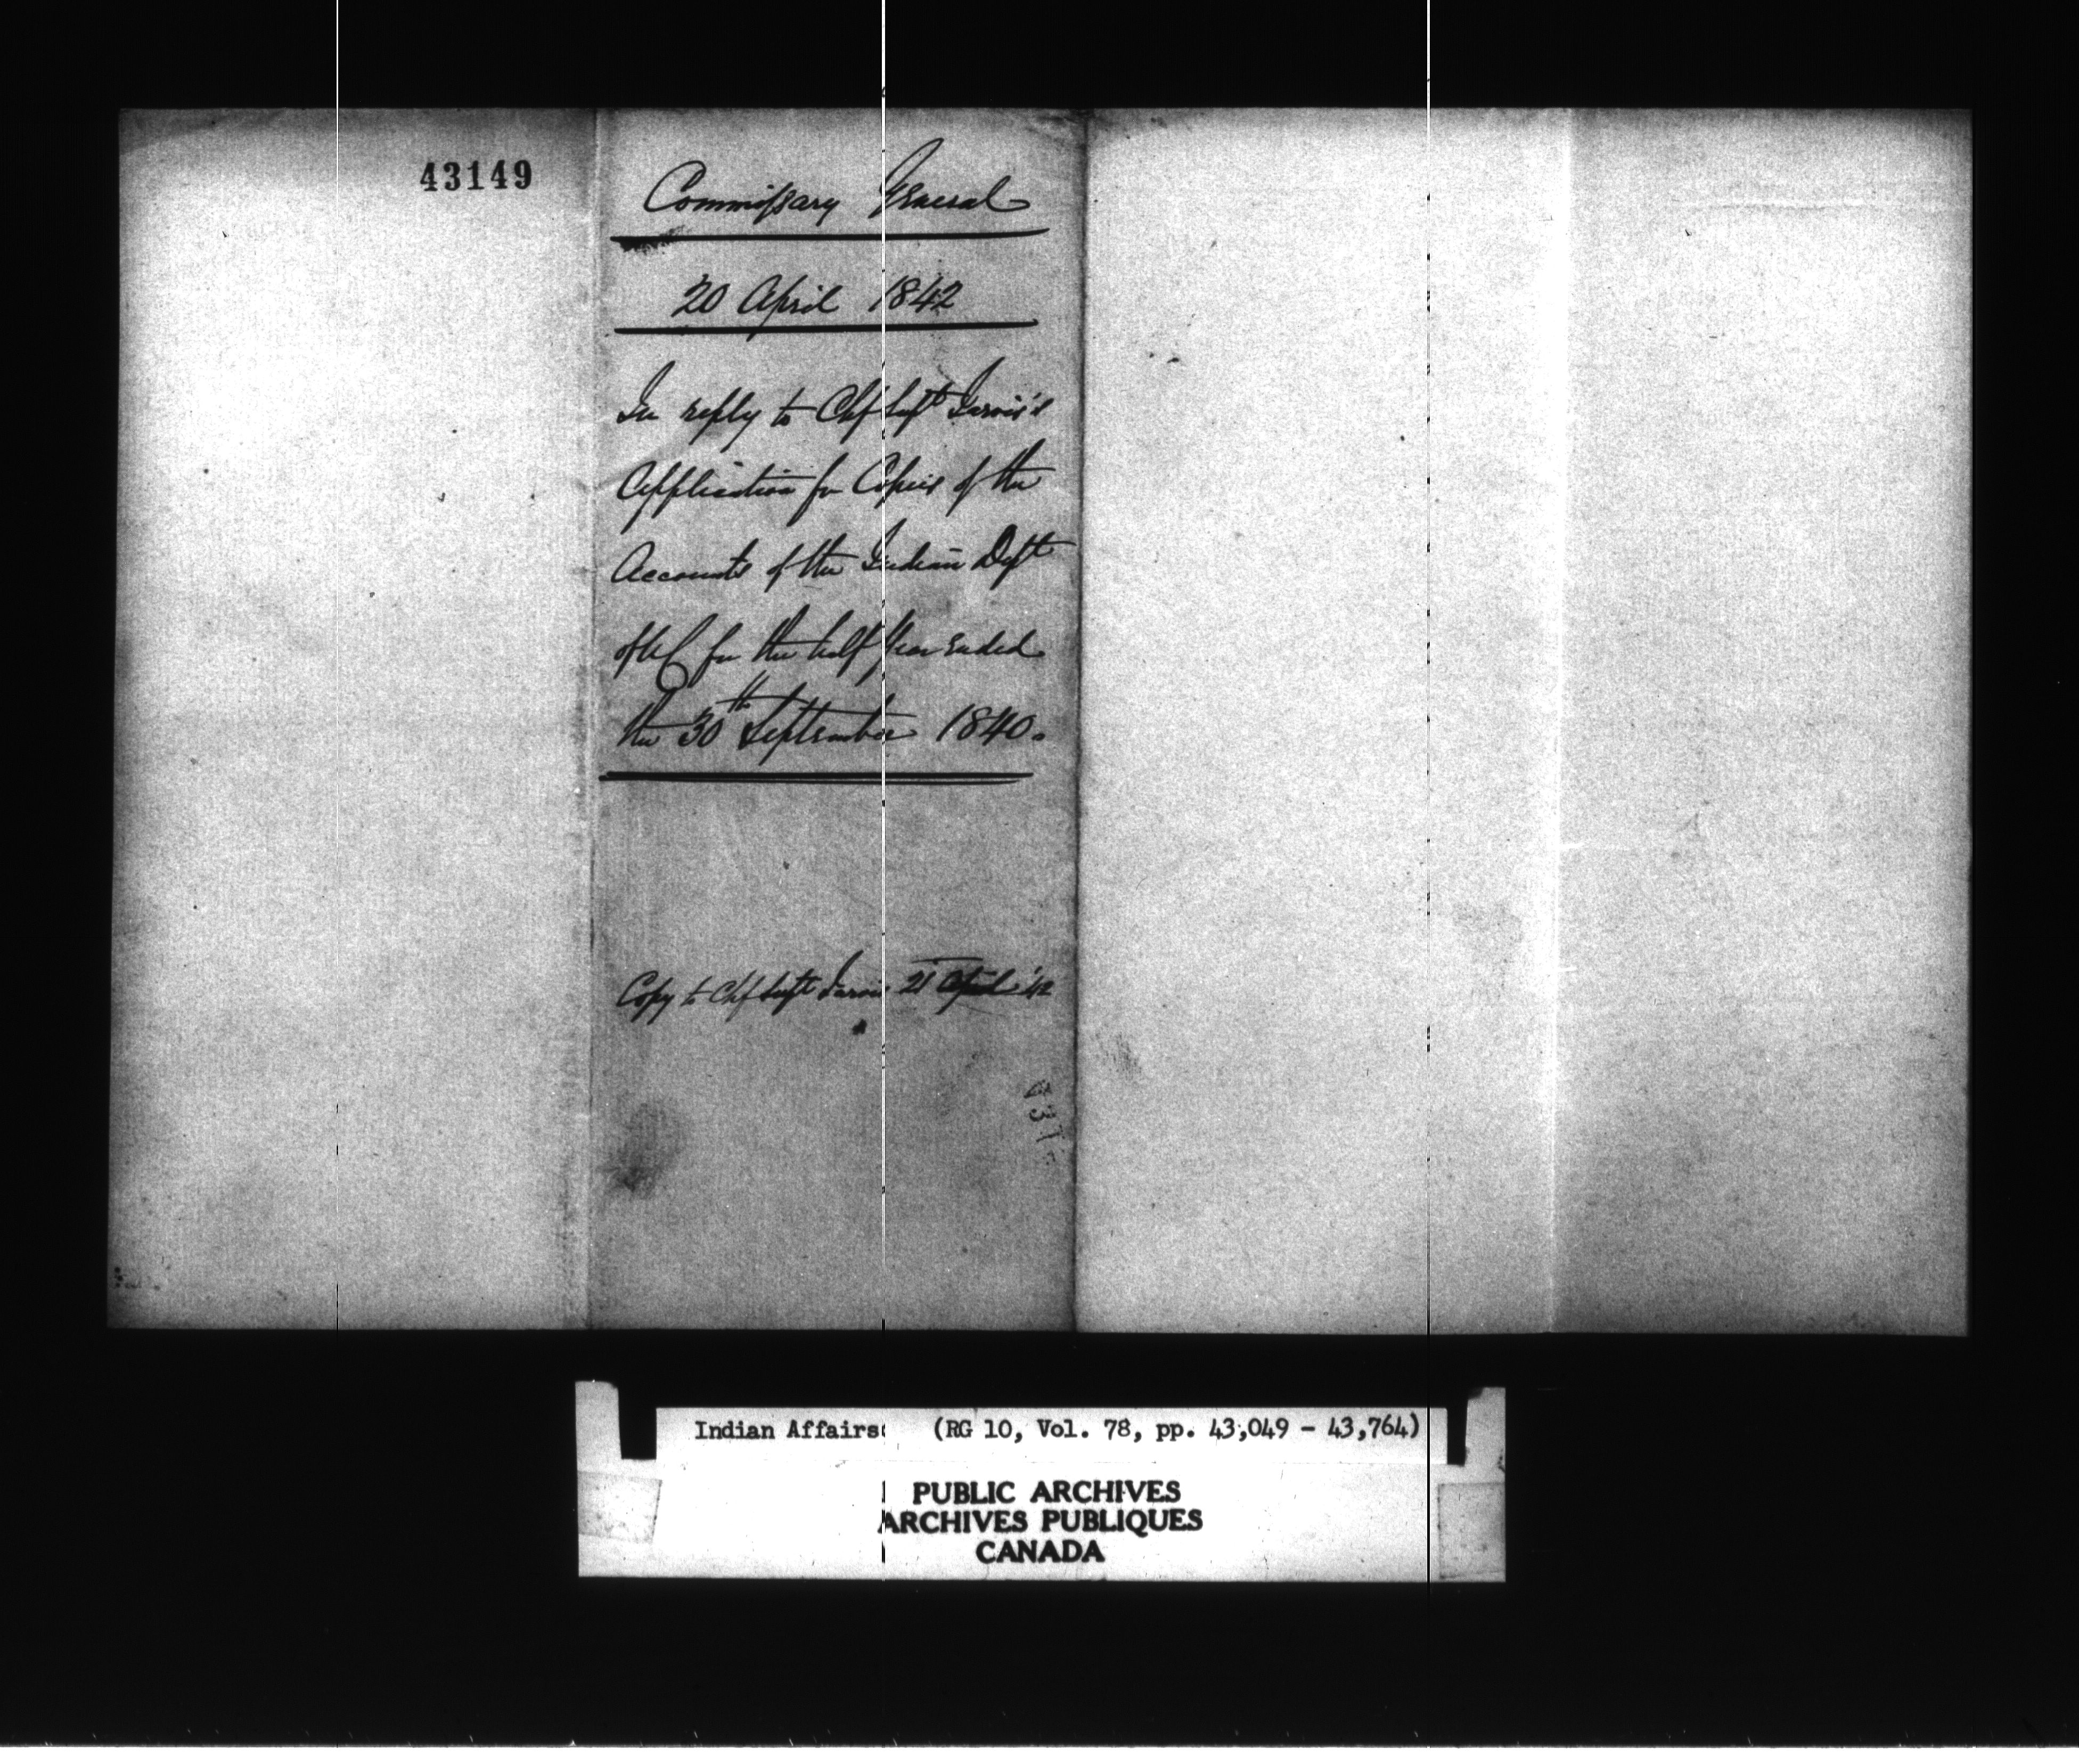 43149
Commissary General
20 April 1842
In reply to Chf Supt Jarvis's
Application for Copies of the
Accounts of the Indian Dept
of UC for the half Year ended
the 30th September 1840.
Copy to Chf Supt Jarvis 21 April '42
Indian Affairs (RG 10, Vol. 78, pp. 43,049 - 43,764)
PUBLIC ARCHIVES
ARCHIVES PUBLIQUES
CANADA